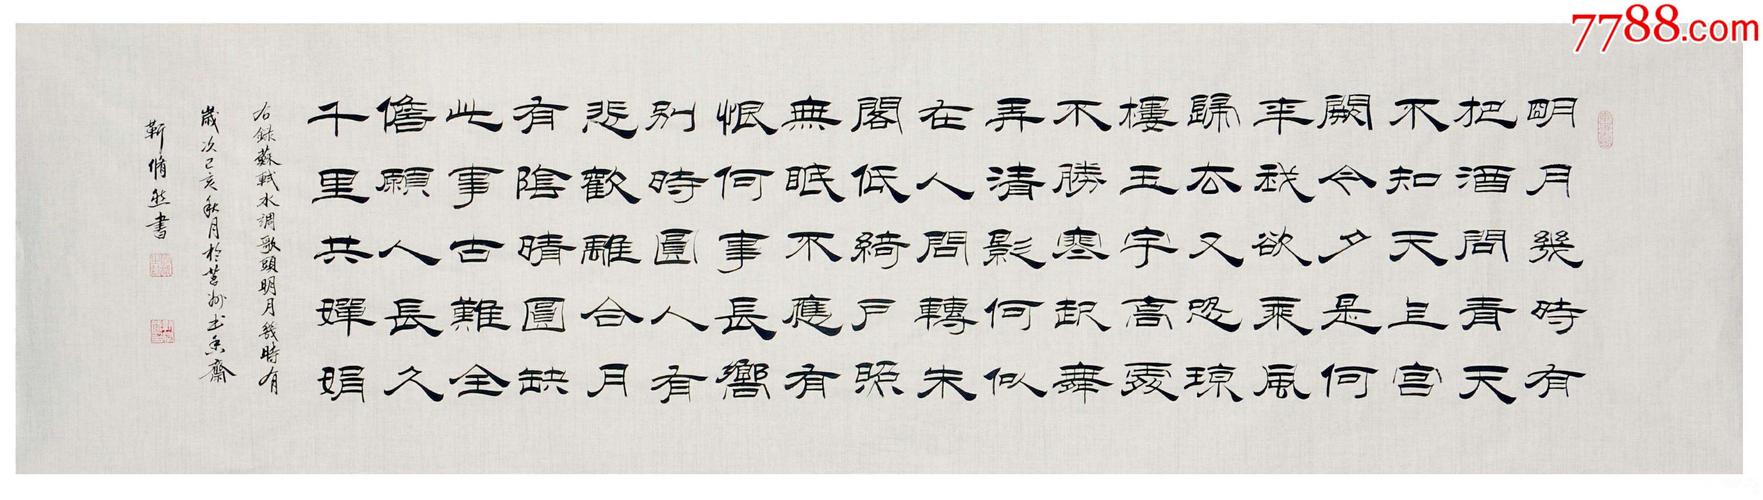 7788.com
明月幾時有
把酒問青天
不知天上宮
闕今夕是何
年我欲乘風
歸去又恐瓊
樓玉宇高處
不勝寒起舞
弄清影何似
在人間轉朱
閣低綺戶照
無眠不應有
恨何事長嚮
別時圓人有
悲歡離合月
有陰晴圓缺
此事古難全
儋願人長久
千里共嬋娟
右錄蘇軾水調歌頭明月幾時有
歲次己亥秋月於莒州古齋
靳脩然書